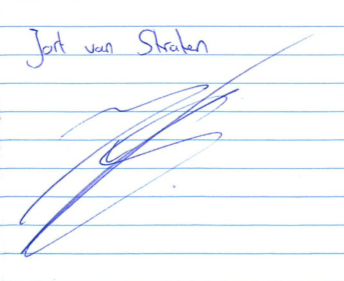 Jort van Straten